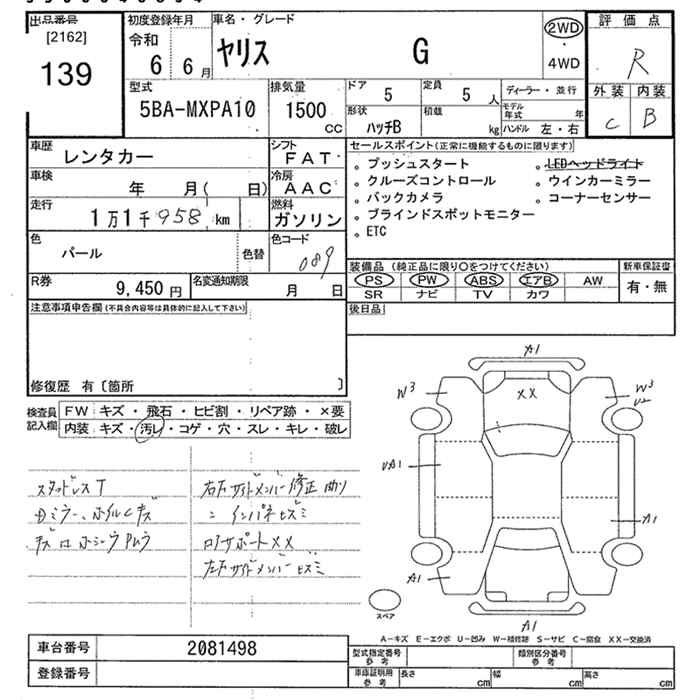 出品番号
[2162]
139
初度登録年月
令和
6 6月
車名・グレード
ヤリス G
2WD
・
4WD
評価点
R
外装 内装
C B
型式
5BA-MXPA10
排気量
1500
CC
ドア
5
定員
5 人
形状
ハッチB
積載
kg
ディーラー・並行
モデル年式 年
ハンドル 左・右
車歴
レンタカー
シフト
FAT
車検
年 月( 日)
冷房
AAC
走行
1万1千958km
燃料
ガソリン
色
パール
色替
色コード
089
R券
9,450円
名変通知期限
月 日
セールスポイント(正常に機能するものに限ります)
。プッシュスタート
。LEDヘッドライト
。クルーズコントロール
。ウインカーミラー
。バックカメラ
。コーナーセンサー
。ブラインドスポットモニター
。ETC
装備品(純正品に限り○をつけてください)
新車保証書
PS PW ABS エアB AW
SR ナビ TV カワ
有・無
後日品
注意事項申告欄(不具合内容等は具体的に記入して下さい)
修復歴 有〔箇所 〕
検査員記入欄
FW キズ・飛石・ヒビ割・リペア跡・×要
内装 キズ・汚レ・コゲ・穴・スレ・キレ・破レ
スタッドレスT
ミラー、ホイルCキズ
右Fサイドメンバー修正 曲り
〃 インパネヒズミ
コアサポートXX
左Fサイドメンバーヒズミ
A1
XX
W3
W3
U2
UA1
A1
A1
A1
スペア
A-キズ E-エクボ U-凹み W-補修跡 S-サビ C-腐食 XX-交換済
車台番号
2081498
登録番号
型式指定番号
参考
類別区分番号
参考
車庫証明用
参考
長さ cm
幅 cm
高さ cm